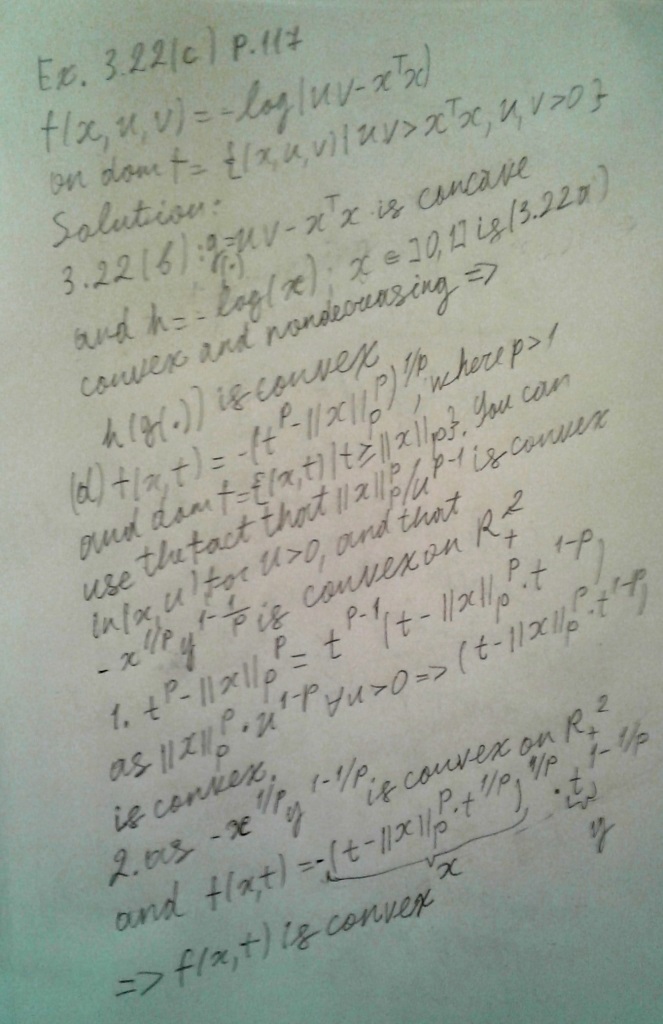 Ex. 3.22(c) p.117
f(x, u, v) = -log(uv - xᵀx)
on dom f = {(x, u, v) | uv > xᵀx, u, v > 0}
Solution:
3.22(b): g(·) = uv - xᵀx is concave
and h = -log(x), x ∈ ]0, 1] is (3.22a)
convex and nondecreasing =>
h(g(·)) is convex
(d) f(x, t) = -(t^p - ||x||_p^p)^{1/p}, where p > 1
and dom f = {(x, t) | t ≥ ||x||_p}. You can
use the fact that ||x||_p^p / u^{p-1} is convex
in (x, u) for u > 0, and that
-x^{1/p} y^{1-1/p} is convex on R_+^2
1. t^p - ||x||_p^p = t^{p-1}(t - ||x||_p^p · t^{1-p})
as ||x||_p^p · u^{1-p} ∀u > 0 => (t - ||x||_p^p · t^{1-p})
is convex,
2. as -x^{1/p} y^{1-1/p} is convex on R_+^2
and f(x, t) = -(t - ||x||_p^p · t^{1-p})^{1/p} · t^{1-1/p}
x y
=> f(x, t) is convex